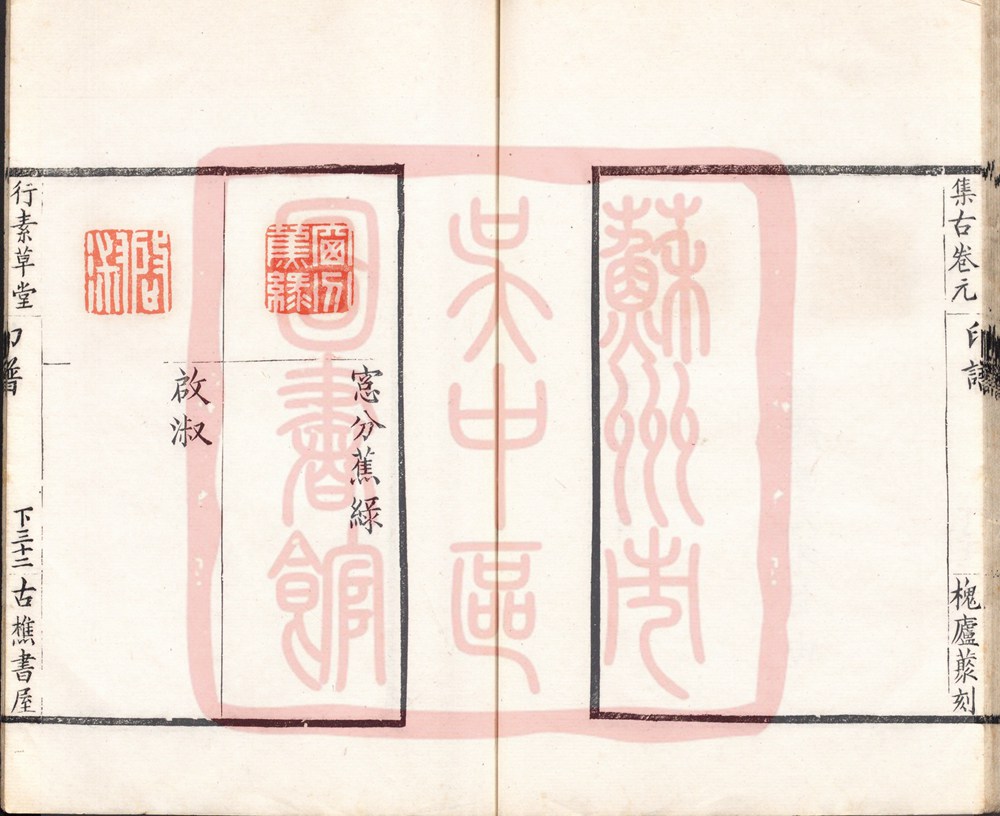 集古卷元
印譜
槐廬蔡刻
蘇州市
吳中區
圖書館
窗分
蕉綠
窓分蕉綠
啟淑
啟淑
行素草堂
印譜
下三十二
古樵書屋